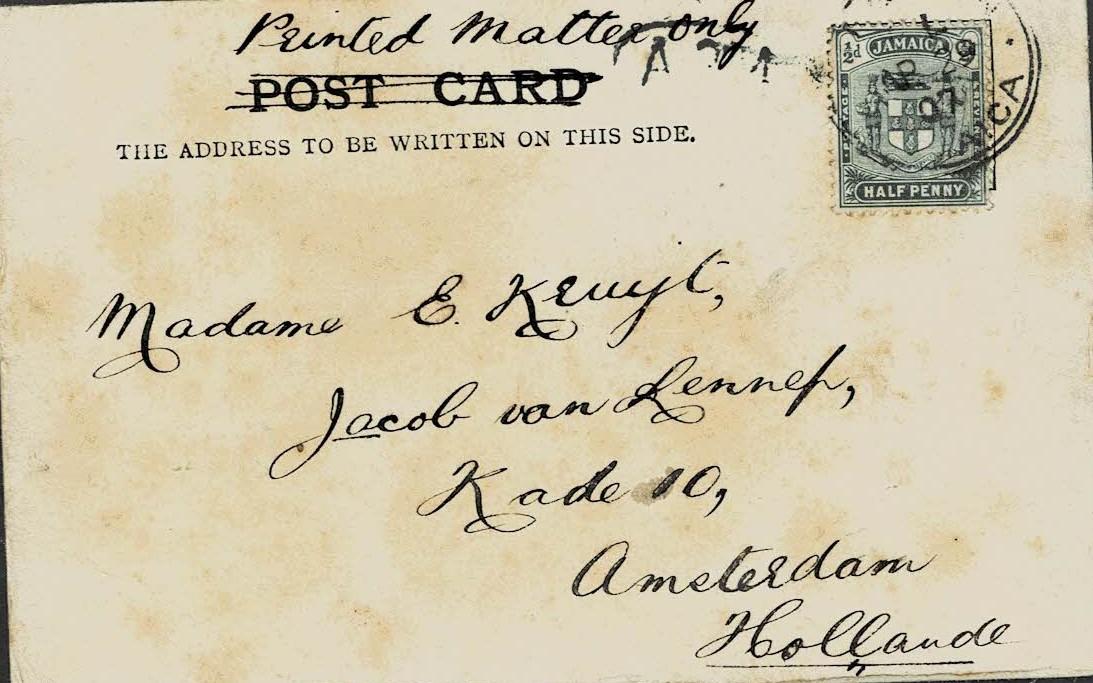 Printed Matter only
POST CARD
THE ADDRESS TO BE WRITTEN ON THIS SIDE.
½d JAMAICA
HALF PENNY
Madame E. Kruyt,
Jacob van Lennep,
Kade 10,
Amsterdam
Hollande